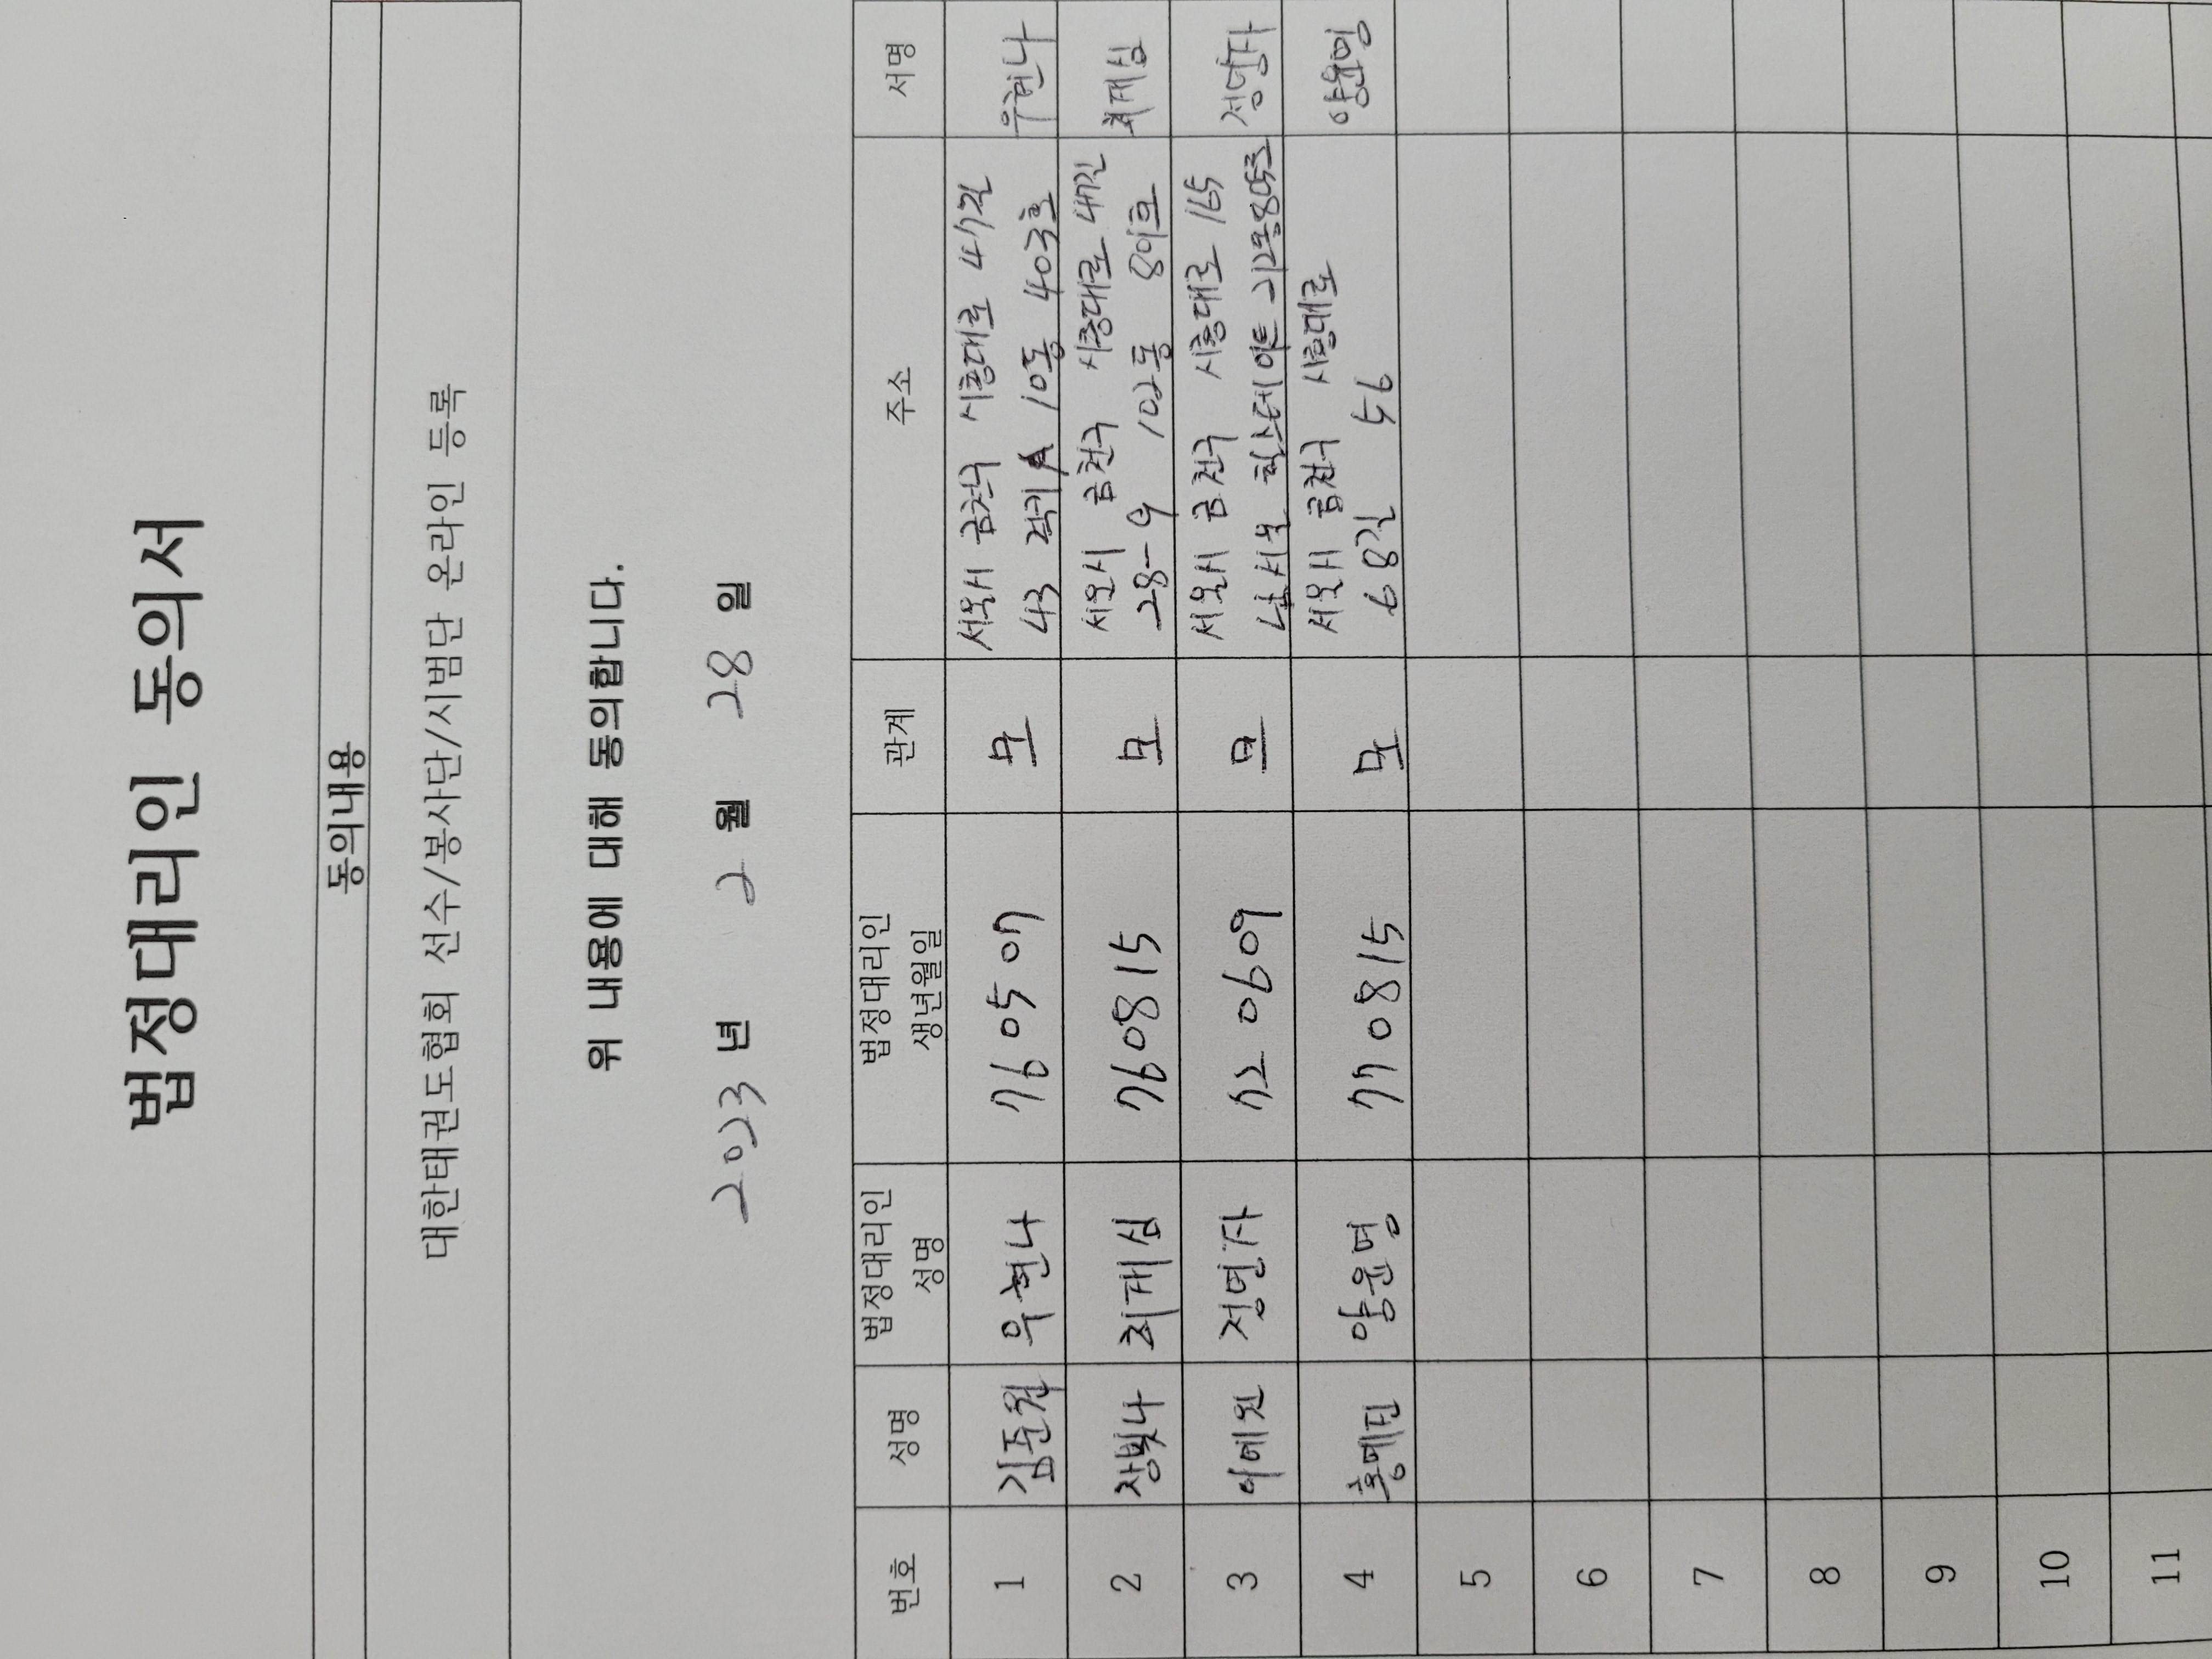 법정대리인 동의서
동의내용
대한태권도협회 선수/봉사단/시범단 온라인 등록
위 내용에 대해 동의합니다.
2023 년 2 월 28 일
번호 성명 법정대리인 성명 법정대리인 생년월일 관계 주소 서명
1 김준원 우현나 760507 모 서울시 금천구 시흥대로 47길 우현나
43 럭키A 10동 403호
2 장빛나 최계심 760815 모 서울시 금천구 시흥대로 최계심
28-9 102동 801호
3 이예원 정명자 720609 모 서울시 금천구 시흥대로 165 정명자
남서울 힐스테이트 212동
4 홍예진 양윤명 770815 모 서울시 금천구 시흥대로 양윤명
68길 56
5
6
7
8
9
10
11